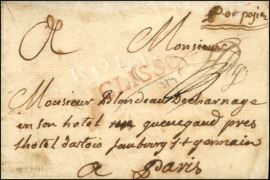 Por papier
A Monsieur
CLISSON
Monsieur Blondeau Decharnage
en son hotel rue quenegaud pres
lhotel dartois faubourg St germain
a Paris